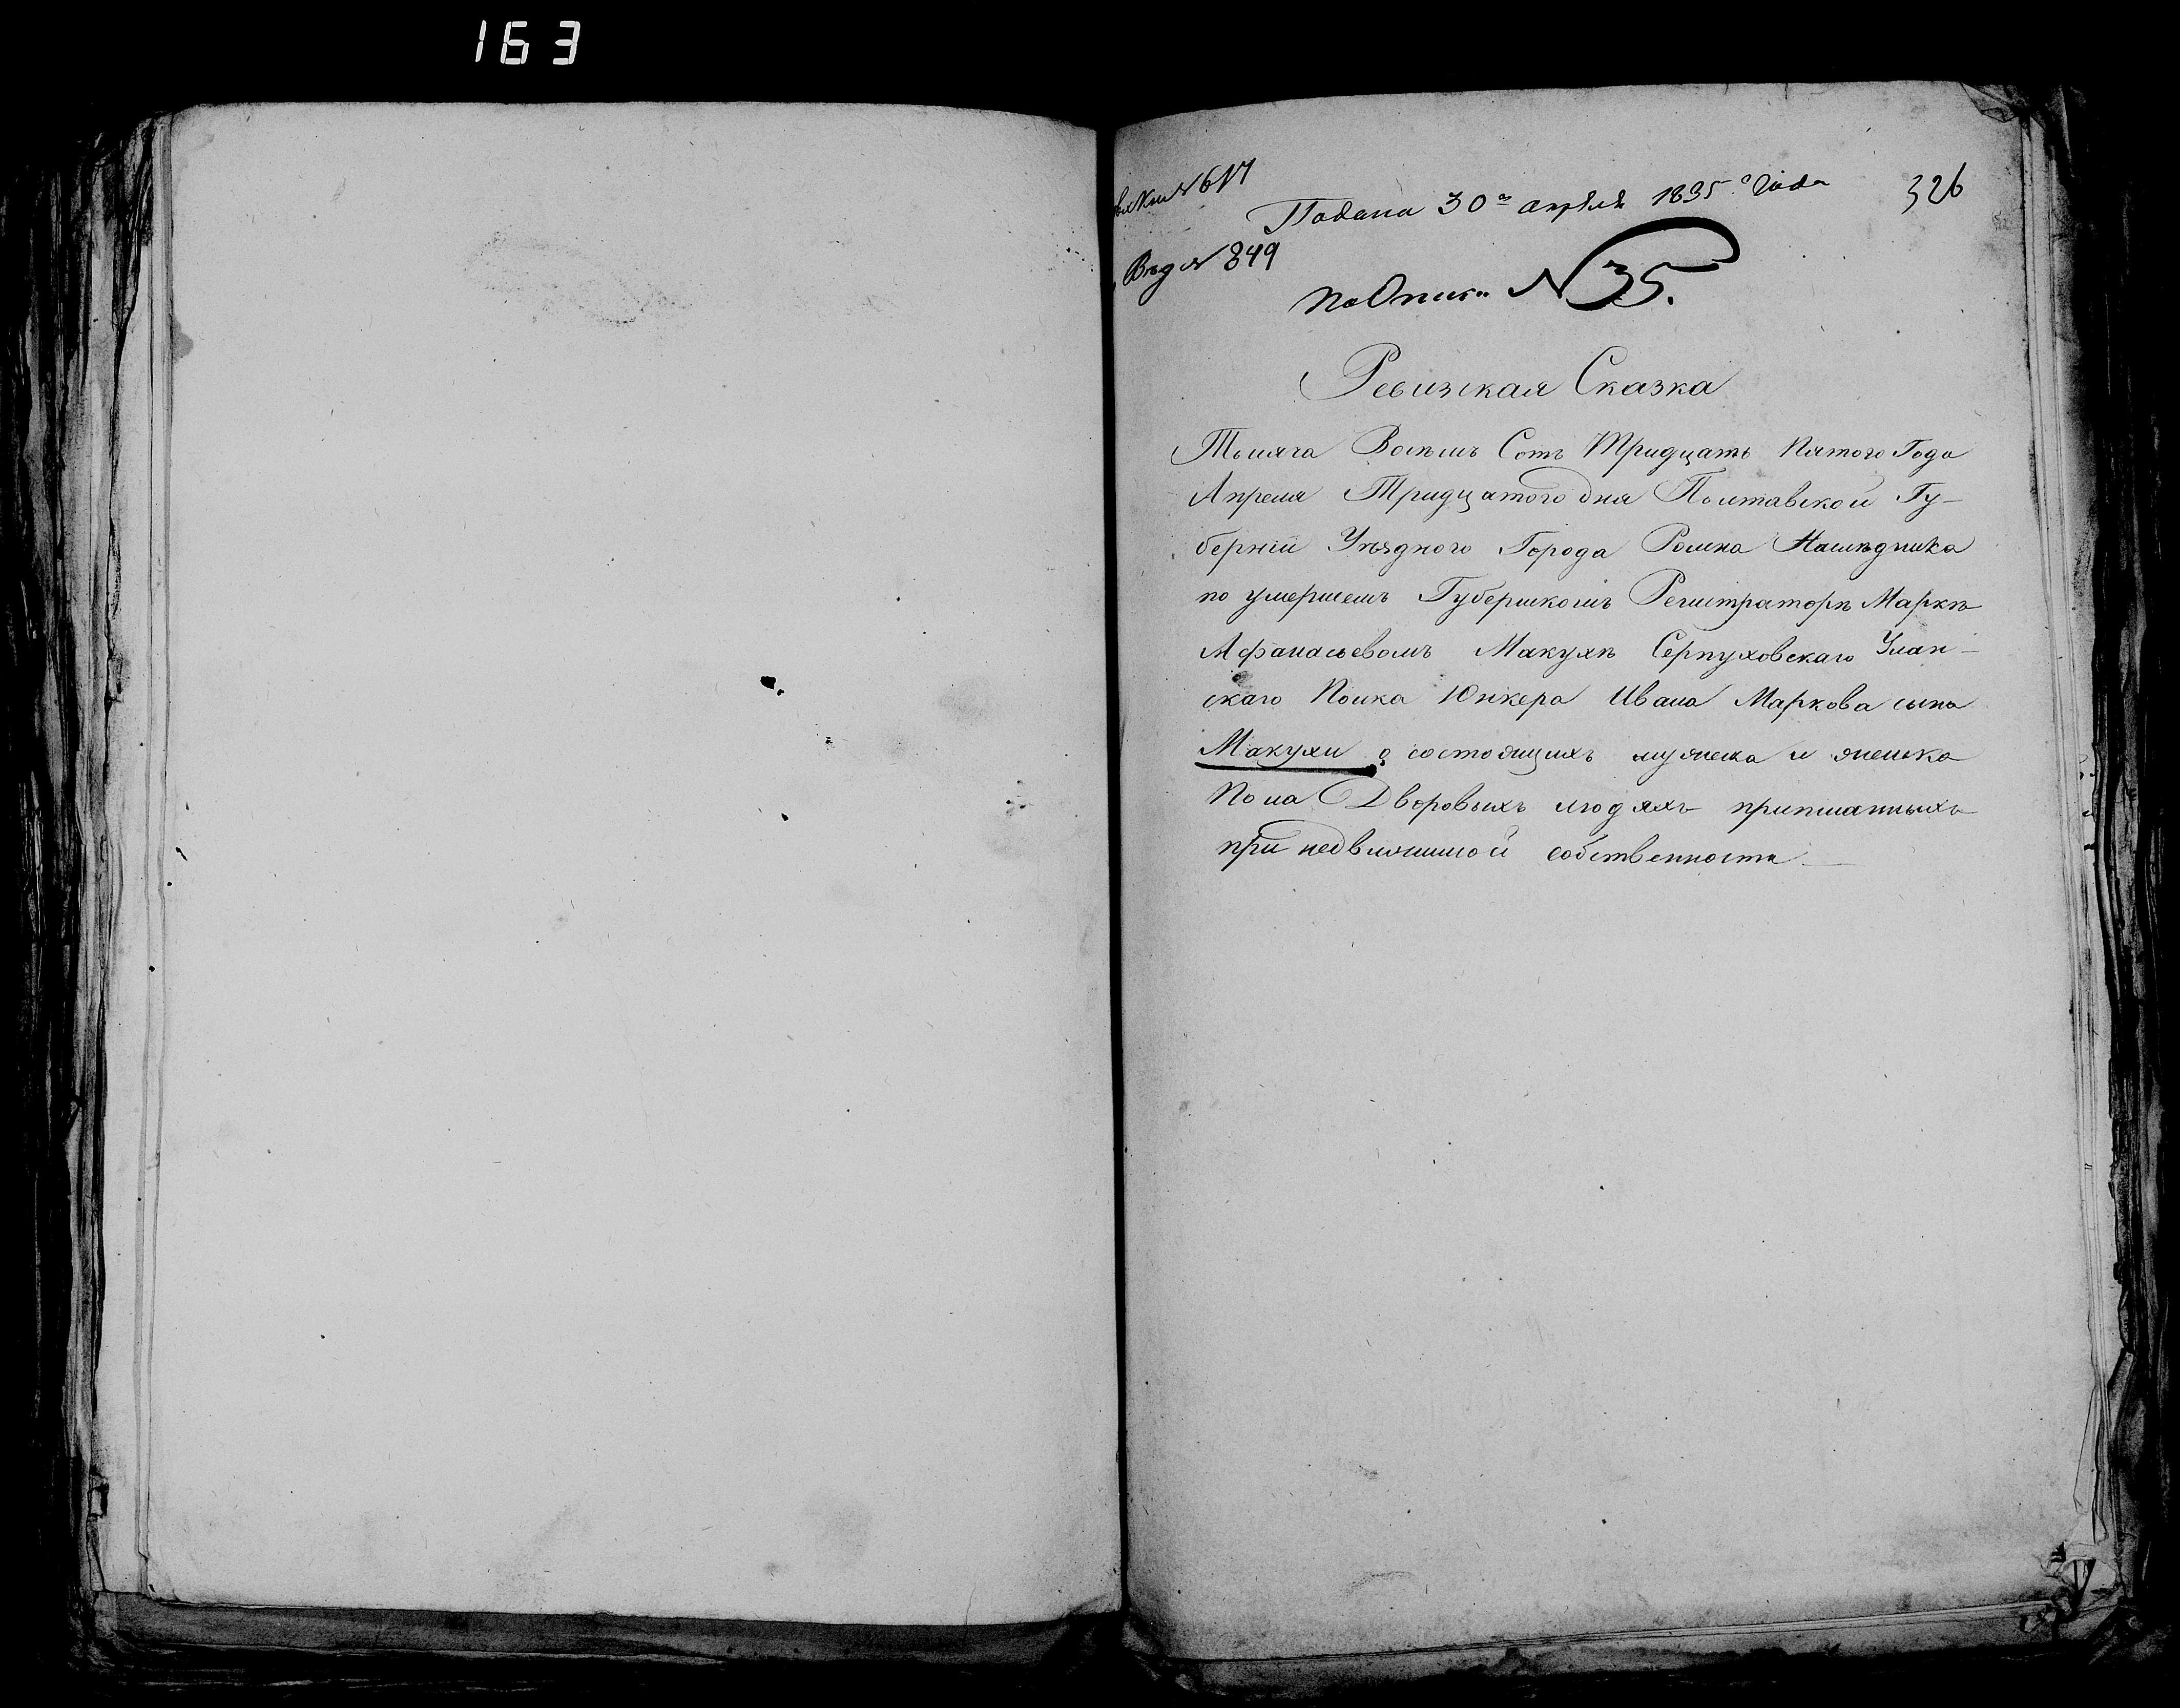 163
№ 617
Подана 30го апреля 1835го Года
326
Вход № 849
по Описи № 35.
Ревизская Сказка
Тысяча Восемь Сотъ Тридцать Пятого Года
Апреля Тридцатого дня Полтавской Гу-
берніи Уѣздного Города Ромна Наследника
по умершемъ Губернскомъ Регистраторѣ Маркѣ
Афанасьевомъ Макухѣ Серпуховскаго Улан-
скаго Полка Юнкера Ивана Маркова сына
Макухи о состоящихъ мужеска и женска
Пола Дворовыхъ людяхъ приписанныхъ
при недвижимой собственности